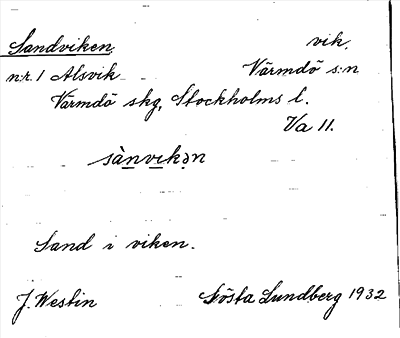 Sandviken vik.
n:r. 1 Alsvik Värmdö s:n
Värmdö skg, Stockholms l.
Va 11.
sànvikən
Sand i viken.
J. Westin Gösta Lundberg 1932